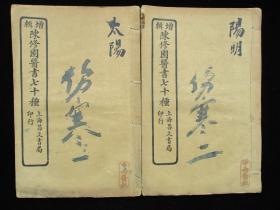 太陽
傷寒一
增輯陳修園醫書七十種
上海昌文書局印行
陽明
傷寒二
增輯陳修園醫書七十種
上海昌文書局印行